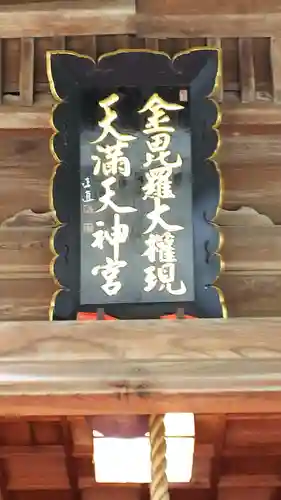 金毘羅大權現
天満天神宮